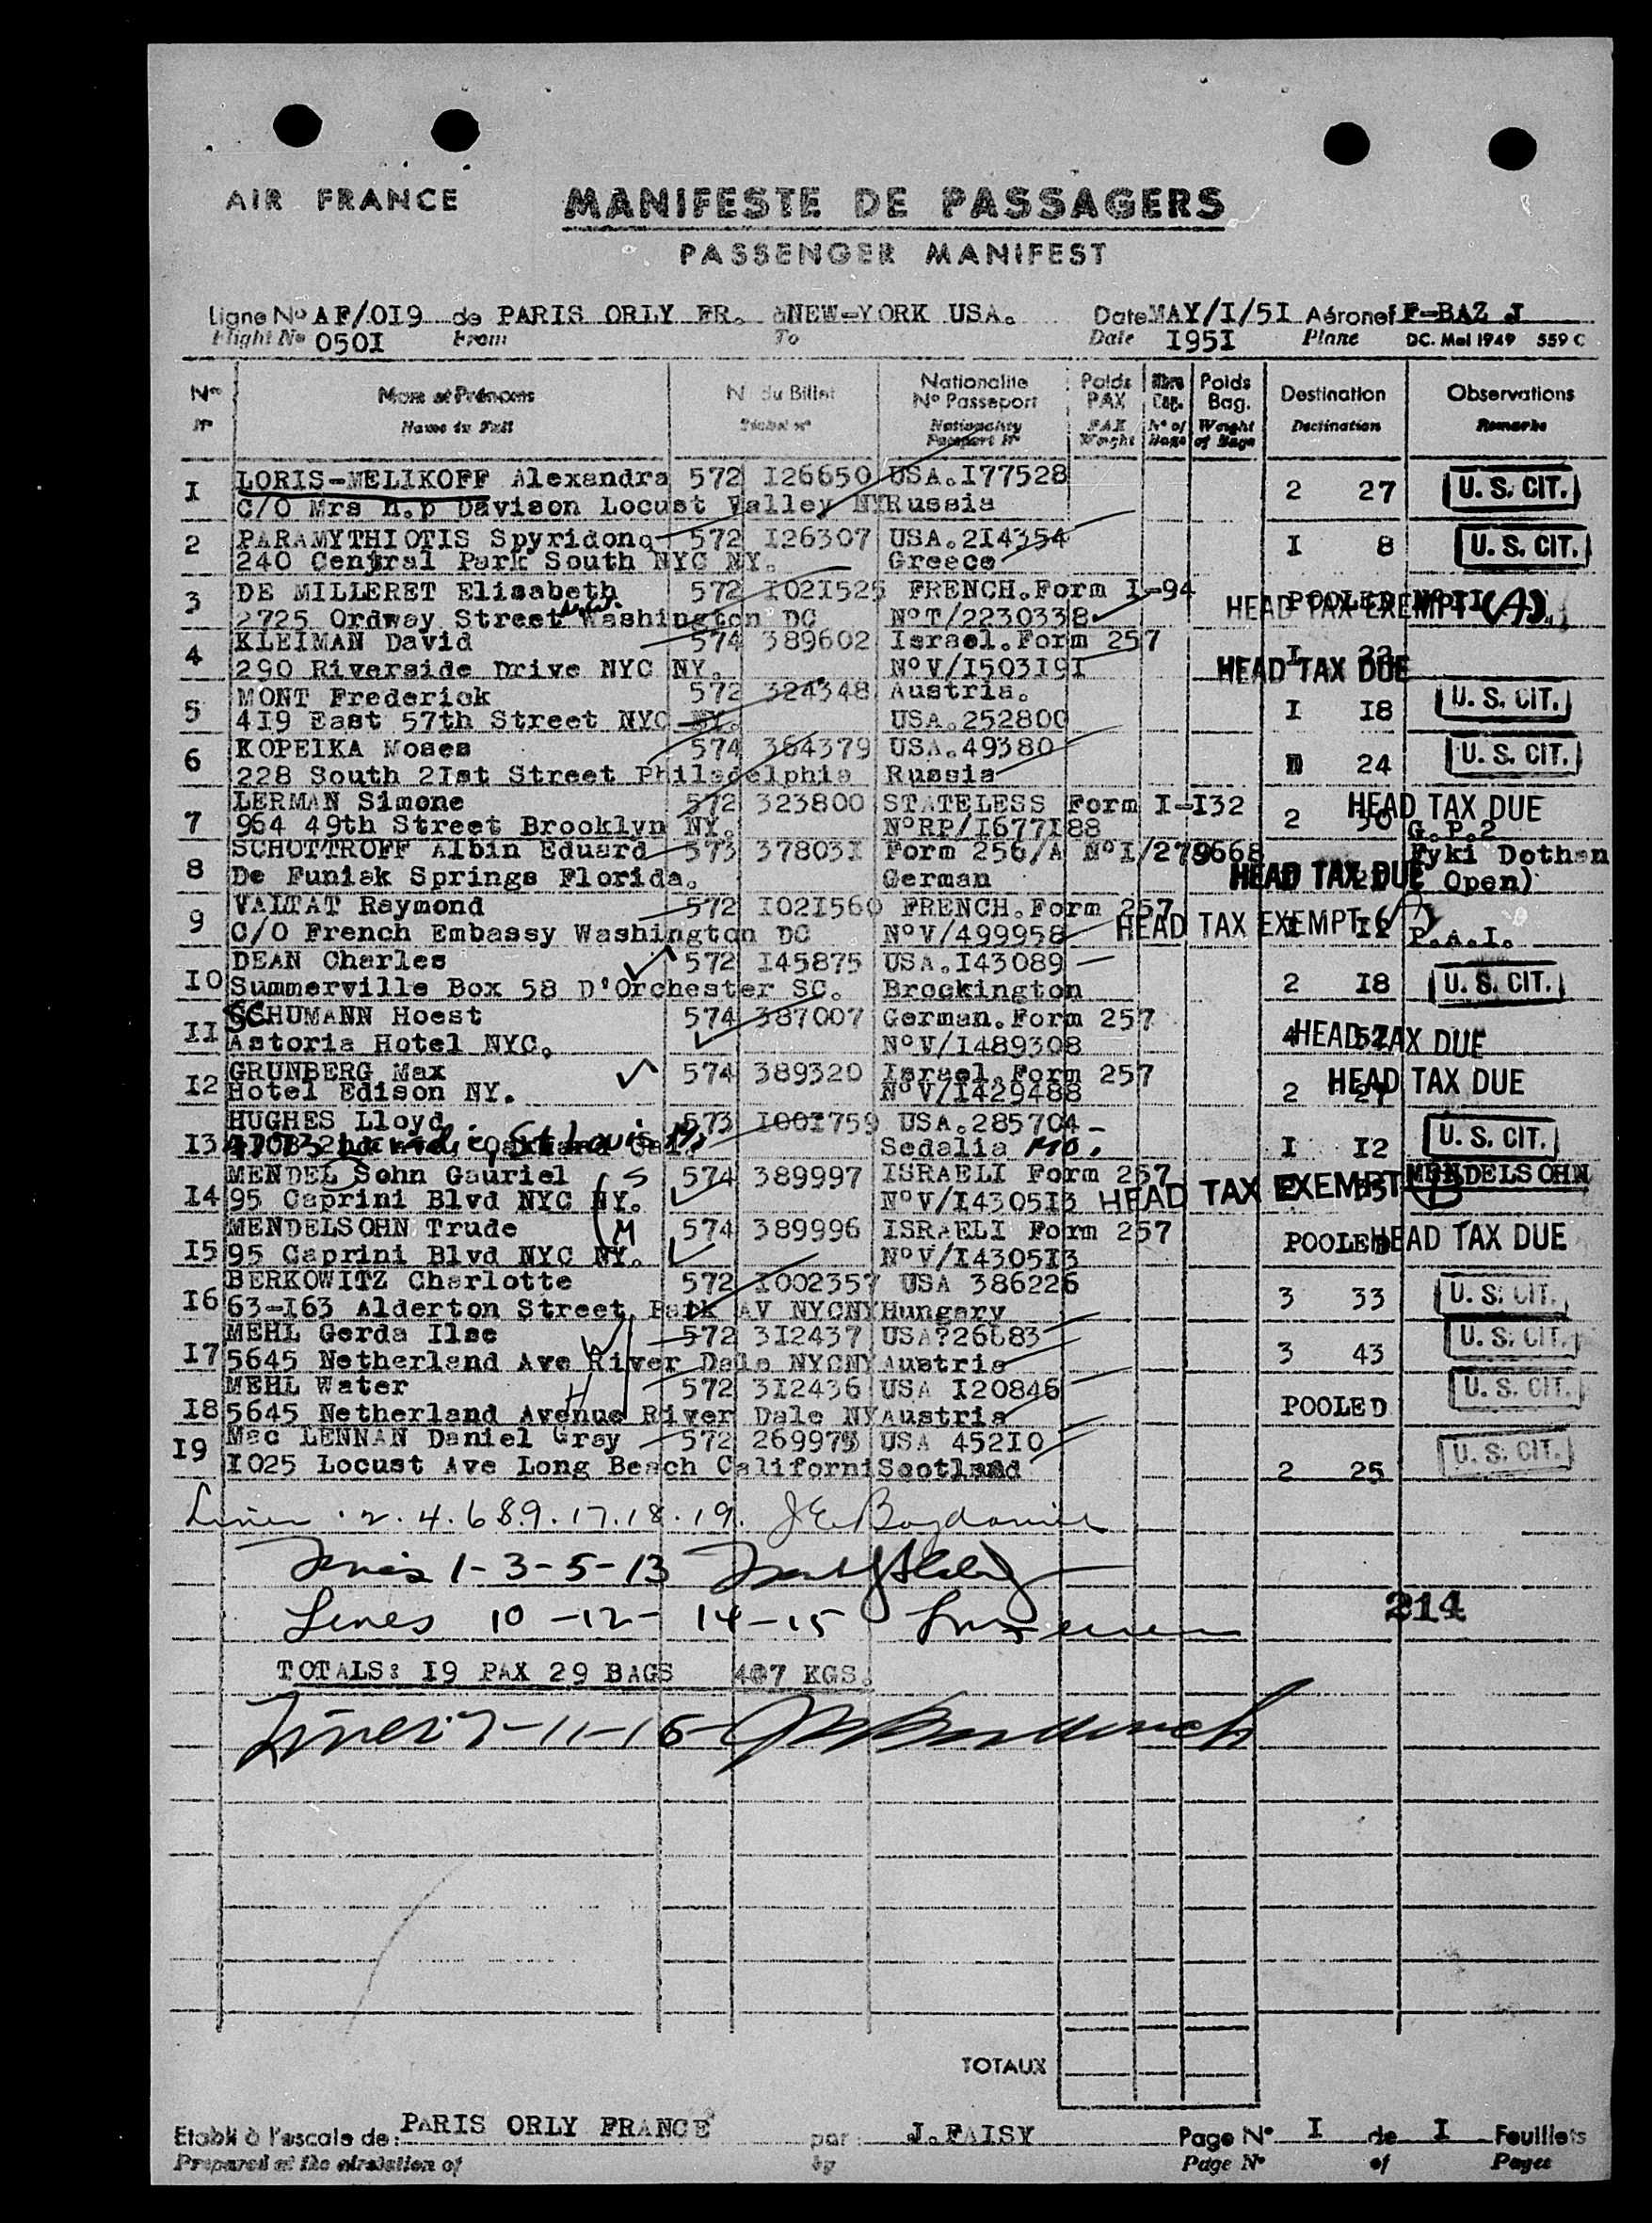 AIR FRANCE
MANIFESTE DE PASSAGERS
PASSENGER MANIFEST
Ligne No AF/0I9 de PARIS ORLY FR. à NEW-YORK USA. Date MAY/I/5I Aéronef F-BAZ J
Flight No 050I From To Date I95I Plane DC. Mai 1949 559 C
Nos Noms et Prénoms N du Billet Nationalité N° Passeport Poids PAX Nbre Bag. Poids Bag. Destination Observations
N° Name in Full Ticket n° Nationality Passport N° PAX Weight N° of Bags Weight of Bags Destination Remarks
I LORIS-MELIKOFF Alexandra 572 I26650 USA.I77528
C/O Mrs h.p Davison Locust Valley NY Russia 2 27 U. S. CIT.
2 PARAMYTHIOTIS Spyridono 572 I26307 USA.2I4354
240 Central Park South NYC NY. Greece I 8 U. S. CIT.
3 DE MILLERET Elisabeth 572 I02I525 FRENCH.Form I-94
2725 Ordway Street Washington DC N°T/2230338 POOLED N°II HEAD TAX EXEMPT (A)
4 KLEIMAN David 574 389602 Israel.Form 257
290 Riverside Drive NYC NY. N°V/I503I9I I HEAD TAX DUE
5 MONT Frederick 572 324348 Austria.
4I9 East 57th Street NYC NY. USA.252800 I I8 U. S. CIT.
6 KOPEIKA Moses 574 364379 USA.49380
228 South 2Ist Street Philadelphia Russia 24 U. S. CIT.
7 LERMAN Simone 572 323800 STATELESS Form I-I32
964 49th Street Brooklyn NY. N°RP/I677I88 2 30 HEAD TAX DUE
G.P.2
8 SCHOTTROFF Albin Eduard 573 37803I Form 256/A N°I/279668 Fyki Dothan
De Funiak Springs Florida. German HEAD TAX DUE Open)
9 VALTAT Raymond 572 I02I560 FRENCH.Form 257
C/O French Embassy Washington DC N°V/499958 HEAD TAX EXEMPT P.A.I.
I0 DEAN Charles 572 I45875 USA.I43089
Summerville Box 58 D'Orchester SC. Brockington 2 I8 U. S. CIT.
II SCHUMANN Hoest 574 387007 German.Form 257
Astoria Hotel NYC. N°V/I489308 4 52 HEAD TAX DUE
I2 GRUNBERG Max 574 389320 Israel.Form 257
Hotel Edison NY. N°V/I429488 2 27 HEAD TAX DUE
I3 HUGHES Lloyd 573 I00I759 USA.285704
St Louis Mo Sedalia Mo. I I2 U. S. CIT.
I4 MENDEL Sohn Gauriel S 574 389997 ISRAELI Form 257
95 Caprini Blvd NYC NY. N°V/I4305I3 HEAD TAX EXEMPT B MENDELSOHN
I5 MENDELSOHN Trude M 574 389996 ISRAELI Form 257
95 Caprini Blvd NYC NY. N°V/I4305I3 POOLED HEAD TAX DUE
I6 BERKOWITZ Charlotte 572 I002357 USA 386226
63-I63 Alderton Street Park AV NYCNY Hungary 3 33 U. S. CIT.
I7 MEHL Gerda Ilse W 572 3I2437 USA?26683
5645 Netherland Ave River Dale NYCNY Austria 3 43 U. S. CIT.
I8 MEHL Water H 572 3I2436 USA I20846
5645 Netherland Avenue River Dale NY Austria POOLED U. S. CIT.
I9 Mac LENNAN Daniel Gray 572 269975 USA 452I0
I025 Locust Ave Long Beach Californi Scotland 2 25 U. S. CIT.
Lines 2.4.6 8.9.17.18.19.
Lines 1-3-5-13
Lines 10-12-14-15
214
TOTALS: I9 PAX 29 BAGS 407 KGS.
Lines 7-11-16-
TOTAUX
Etabli à l'escale de: PARIS ORLY FRANCE par J.FAISY Page N° I de I Feuillets
Prepared at the airstation of by Page N° of Pages